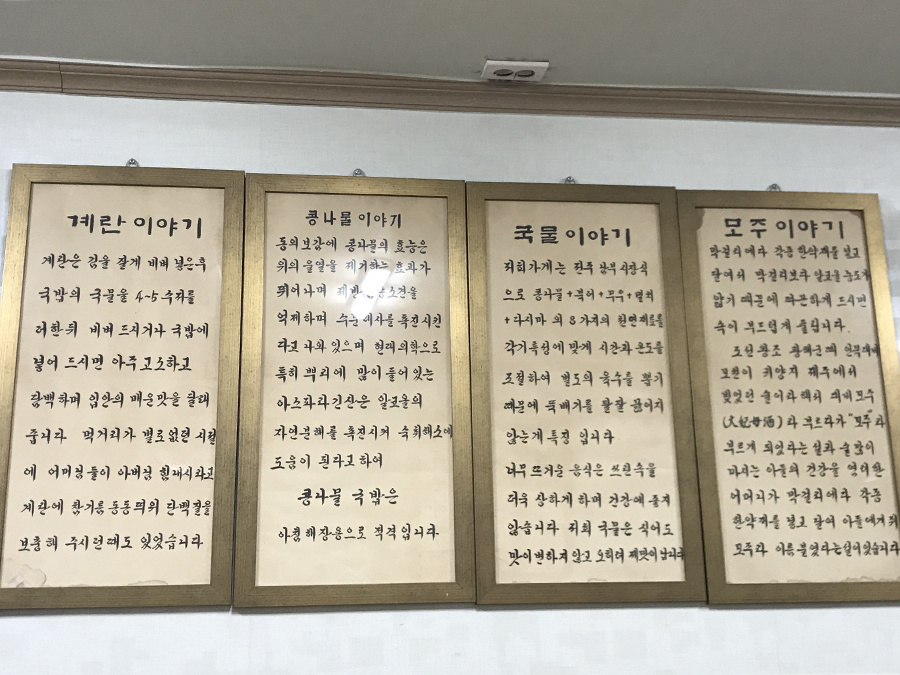 계란 이야기
계란은 김을 잘게 비벼 넣은후
국밥의 국물을 4-5 수저를
더한뒤 비벼 드시거나 국밥에
넣어 드시면 아주 고소하고
담백하며 입안의 매운맛을 달래
줍니다 먹거리가 별로없던 시절
에 어머님들이 아버님 힘내시라고
계란에 참기름 동동띄워 단백질을
보충해 주시던때도 있었습니다
콩나물 이야기
동의보감에 콩나물의 효능은
위의 울열을 제거하는 효과가
뛰어나며
억제하며 수분대사를 촉진시킨
다고 나와 있으며 현대의학으로
특히 뿌리에 많이 들어 있는
아스파라긴산은 알코올의
자연분해를 촉진시켜 숙취해소에
도움이 된다고 하여
콩나물 국밥은
아침해장용으로 적격 입니다
국물 이야기
저희가게는 전주 남부시장식
으로 콩나물+북어+무우+멸치
+다시마 외 8가지의 천연재료를
각기특성에 맞게 시간과 온도를
조절하여 별도의 육수를 뽑기
때문에 뚝배기를 팔팔 끓이지
않는게 특징 입니다
너무 뜨거운 음식은 쓰린속을
더욱 상하게 하며 건강에 좋지
않습니다 저희 국물은 식어도
맛이변하지 않고 오히려 제맛이 납니다
모주 이야기
막걸리에다 각종 한약재를 넣고
달여서 막걸리보다 알코올농도가
낮기 때문에 따끈하게 드시면
속이 부드럽게 풀립니다.
조선왕조 광해군때 인목대비
모친이 귀양지 제주에서
빚었던 술이라 해서 대비모주
(大妃母酒)라 부르다가 "모주"
부르게 되었다는 설과 술많이
마시는 아들의 건강을 염려한
어머니가 막걸리에다 각종
한약재를 넣고 달여 아들에게 줘
모주라 이름 붙였다는설이있습니다